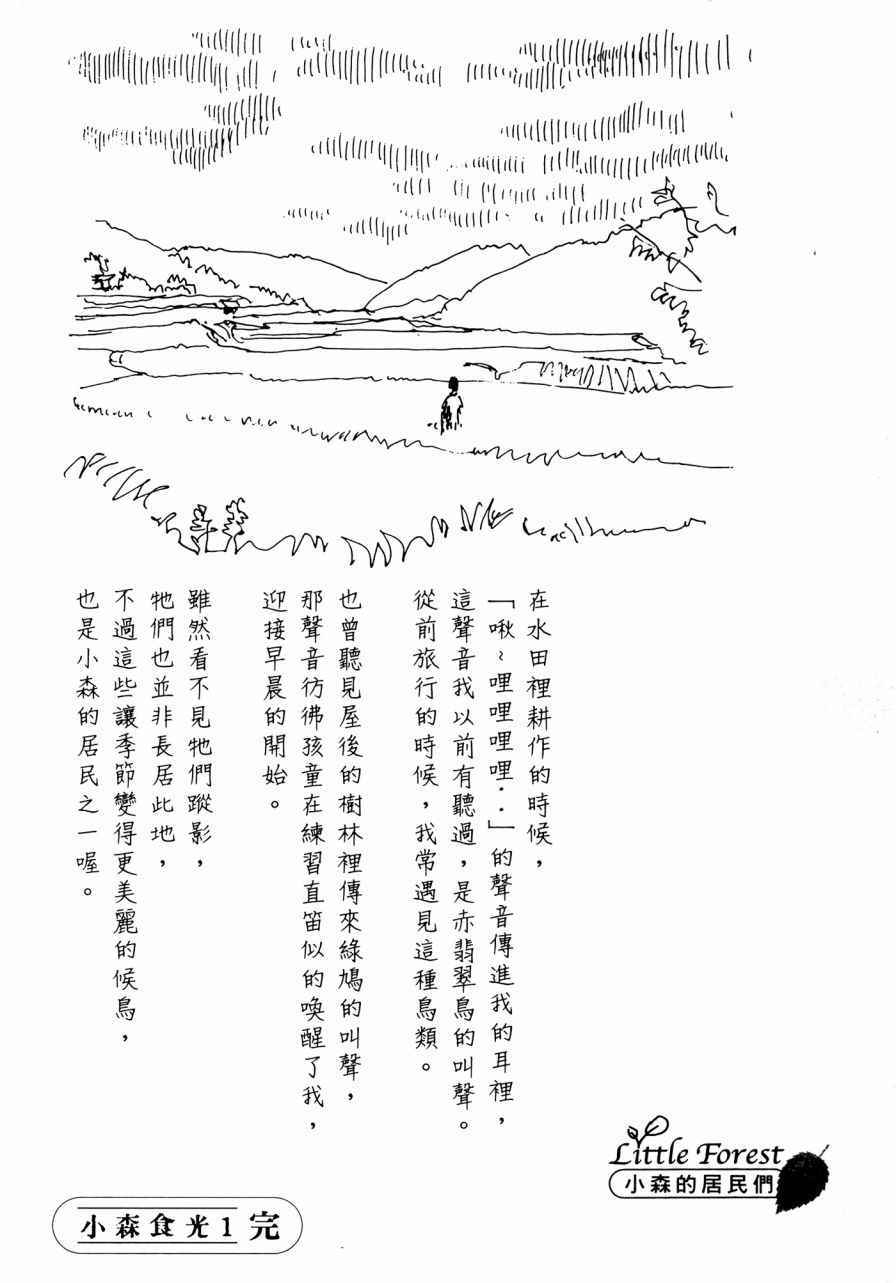 在水田裡耕作的時候，
「啾~哩哩哩哩‥」的聲音傳進我的耳裡，
這聲音我以前有聽過，是赤翡翠鳥的叫聲。
從前旅行的時候，我常遇見這種鳥類。
也曾聽見屋後的樹林裡傳來綠鳩的叫聲，
那聲音彷彿孩童在練習直笛似的喚醒了我，
迎接早晨的開始。
雖然看不見牠們蹤影，
牠們也並非長居此地，
不過這些讓季節變得更美麗的候鳥，
也是小森的居民之一喔。
Little Forest
小森的居民們
小森食光1 完